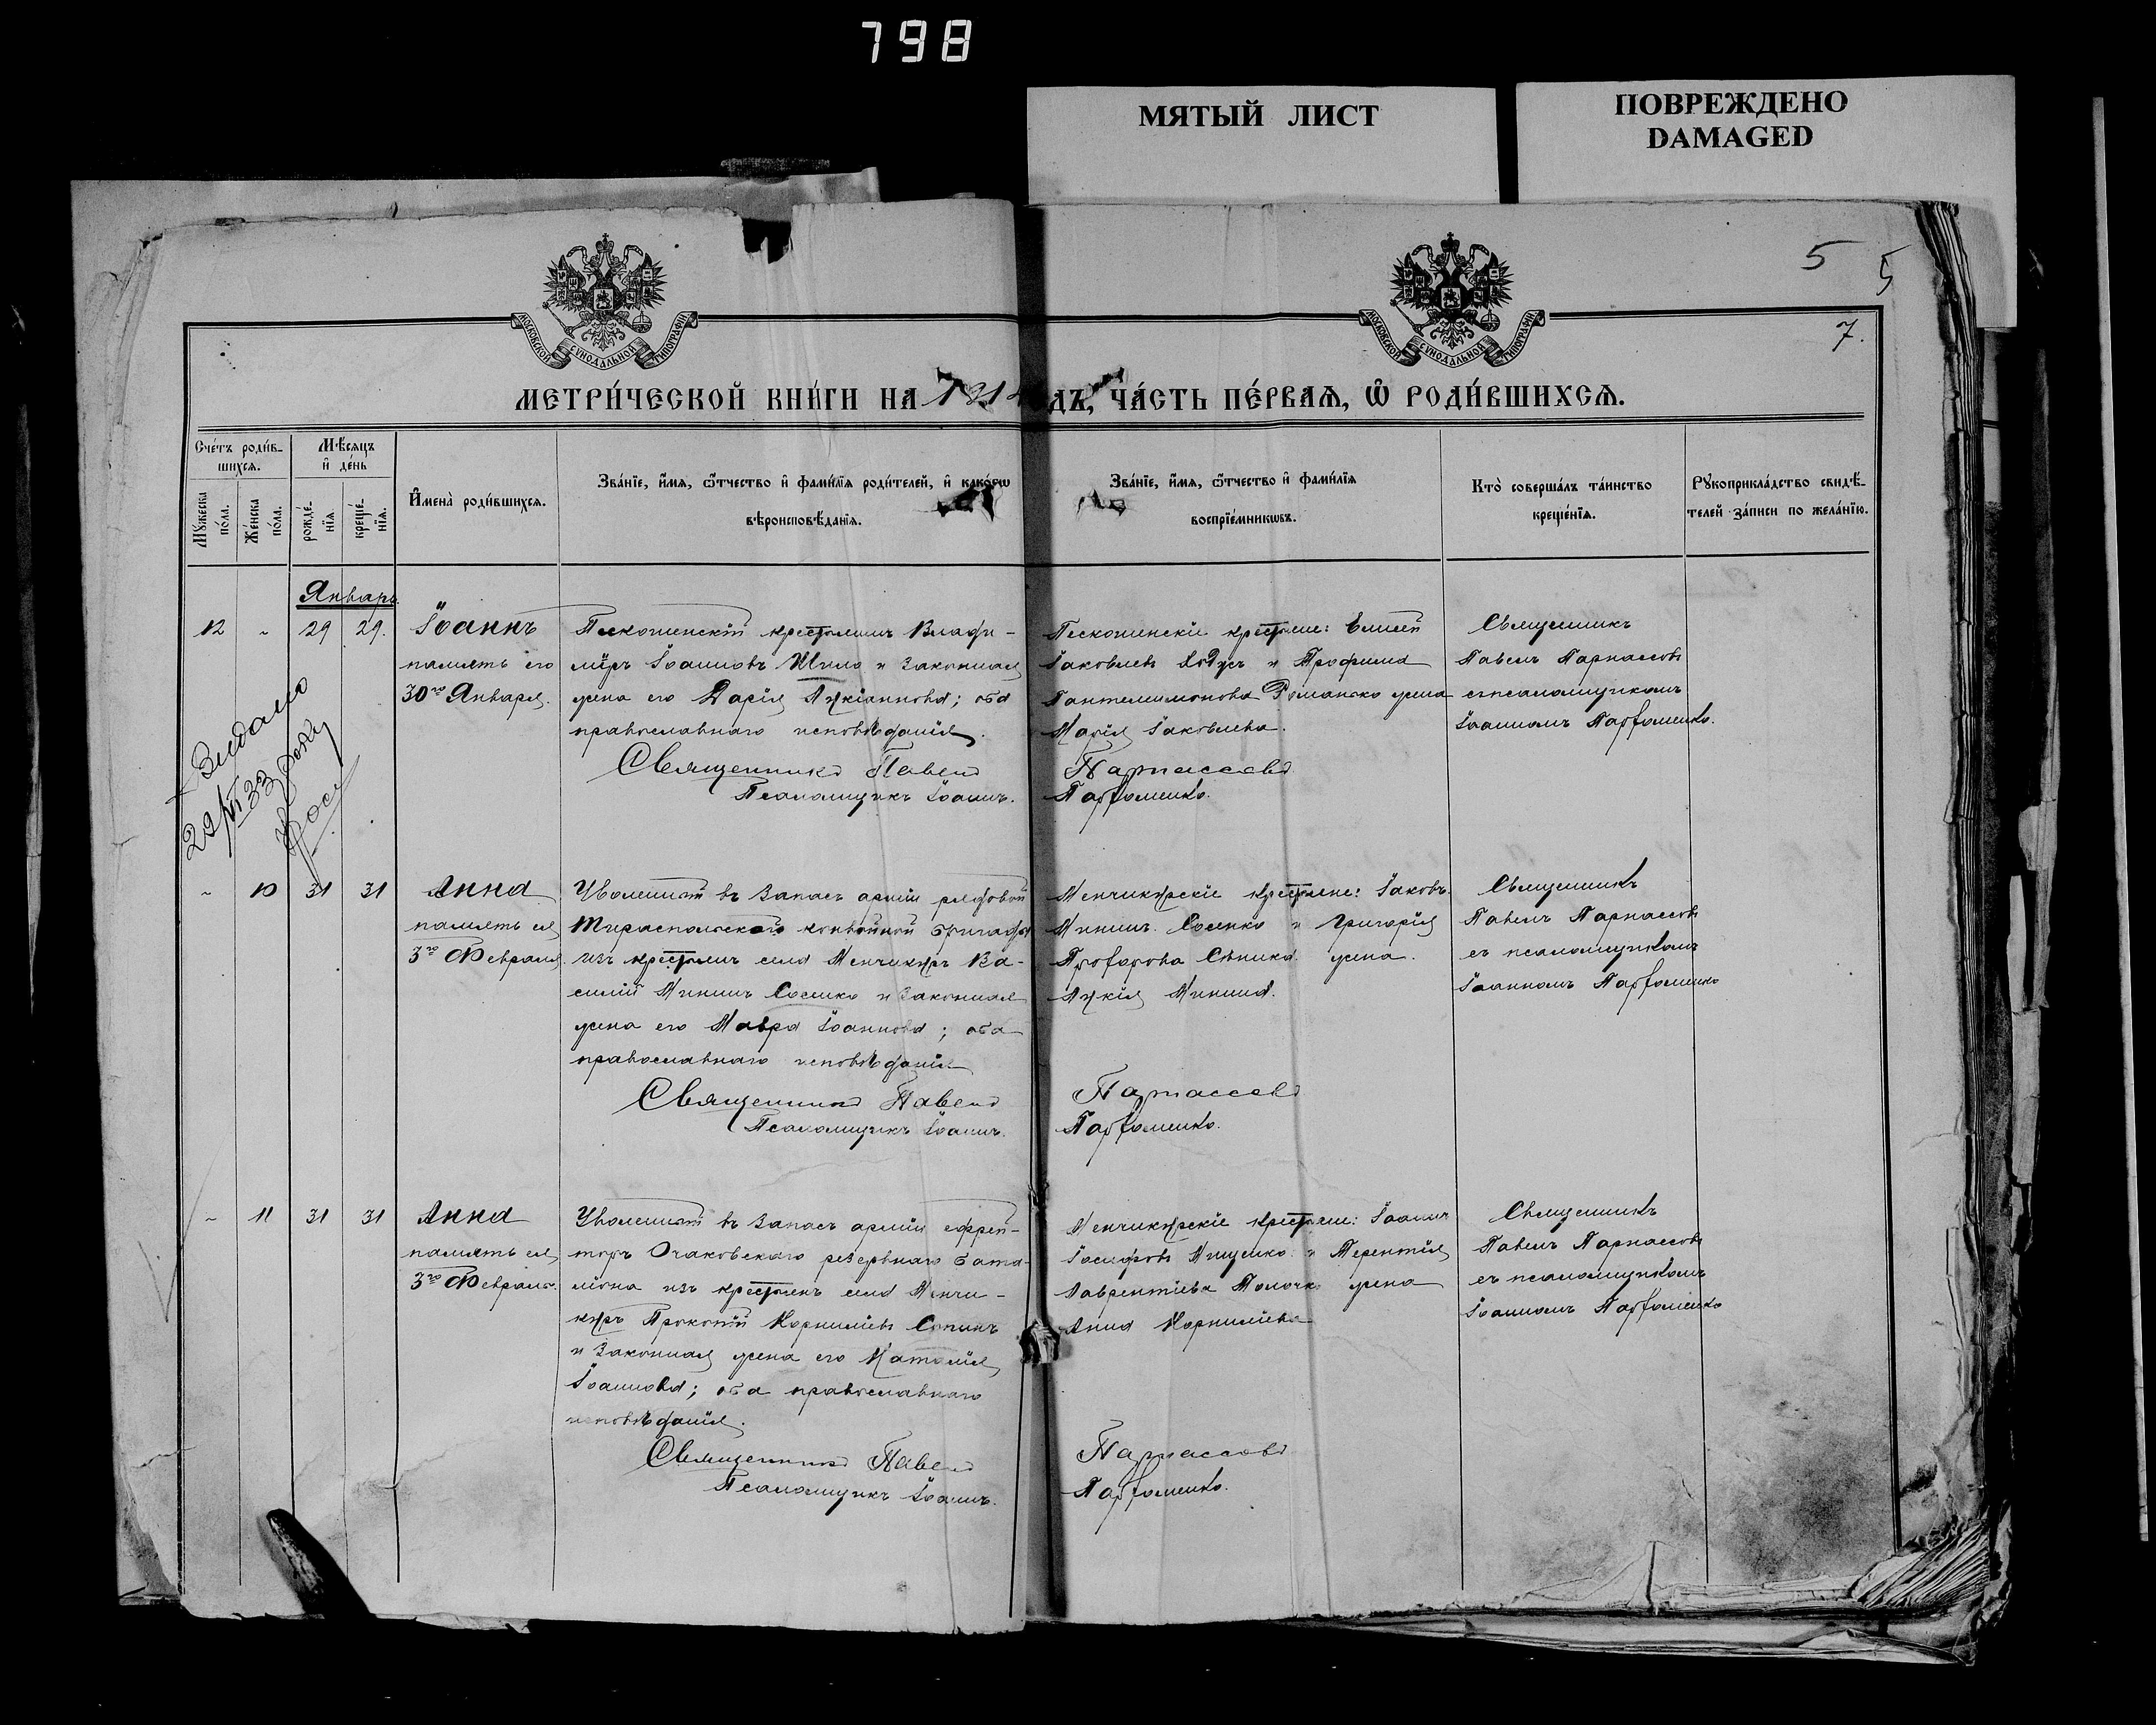 798
МЯТЫЙ ЛИСТ
ПОВРЕЖДЕНО
DAMAGED
5 5
7.
МОСКОВСКОЙ СѴНОДАЛЬНОЙ ТИПОГРАФІИ
МОСКОВСКОЙ СѴНОДАЛЬНОЙ ТИПОГРАФІИ
МЕТРИ́ЧЕСКОЙ КНИ́ГИ НА 191 ДЪ, ЧА́СТЬ ПЕ́РВАѦ, Ѡ҆ РОДИ́ВШИХСѦ.
Сче́тъ роди́в-
шихсѧ.
Мꙋжеска по́ла.
Же́нска по́ла.
Мѣ́сѧцъ
и҆ де́нь
рожде́-
нїѧ.
креще́-
нїѧ.
И҆мена̀ роди́вшихсѧ.
Зва́нїе, и҆́мѧ, ѻ҆́тчество и҆ фами́лїѧ роди́телей, и҆ како́гѡ
вѣроисповѣ́данїѧ.
Зва́нїе, и҆́мѧ, ѻ҆́тчество и҆ фами́лїѧ
воспрїе́мникѡвъ.
Кто̀ соверша́лъ та́инство
креще́нїѧ.
Рꙋкоприкла́дство свидѣ́-
телей за́писи по жела́нїю.
Январь.
12 " 29 29.
Іоаннъ
память его
30го Января.
Видано
22/VI 33 року
Пескошинскій крестьянинъ Влади-
міръ Іоанновъ Шило и законная
жена его Дарія Лукіановна; оба
православнаго исповѣданія.
Священникъ Павелъ
Псаломщикъ Іоаннъ.
Пескошинскіе крестьяне: Елисей
Іаковлевъ и Трофима
Пантелеимонова Романско жена
Марія Іаковлева.
Парнассовъ
Парфоменко.
Священникъ
Павелъ Парнассовъ
съ псаломщикомъ
Іоанномъ Парфоменко.
" 10 31 31
Анна
память ея
3го Февраля
Уволенный въ запасъ арміи рядовой
Тираспольской конвойной бригады
изъ крестьянъ села Менчикуръ Ва-
силій Мининъ Сосенко и законная
жена его Мавра Іоаннова; оба
православнаго исповѣданія
Священникъ Павелъ
Псаломщикъ Іоаннъ.
Менчикурскіе крестьяне: Іаковъ
Мининъ Сосенко и Григорія
жена
Лукія Минина.
Парнассовъ
Парфоменко.
Священникъ
Павелъ Парнассовъ
съ псаломщикомъ
Іоанномъ Парфоменко
" 11 31 31
Анна
память ея
3го Февраля.
Уволенный въ запасъ арміи ефрей-
торъ Очаковскаго резервнаго бата-
ліона изъ крестьянъ села Менчи-
куръ Прокопій Корниліевъ
и законная жена его Наталія
Іоаннова; оба православнаго
исповѣданія.
Священникъ Павелъ
Псаломщикъ Іоаннъ.
Менчикурскіе крестьяне: Іоаннъ
Іосифовъ Мищенко и Терентія
Лаврентіева жена
Анна Корниліева
Парнассовъ
Парфоменко.
Священникъ
Павелъ Парнассовъ
съ псаломщикомъ
Іоанномъ Парфоменко